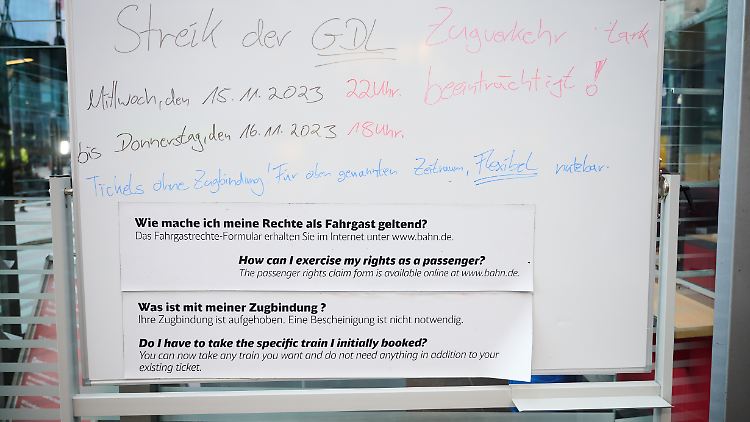 Streik der GDL Zugverkehr tark
Mittwoch, den 15.11.2023 22Uhr. beeinträchtigt!
bis Donnerstag, den 16.11.2023 18Uhr.
Tickets ohne Zugbindung! Für oben genannten Zeitraum, Flexibel nutzbar.
Wie mache ich meine Rechte als Fahrgast geltend?
Das Fahrgastrechte-Formular erhalten Sie im Internet unter www.bahn.de.
How can I exercise my rights as a passenger?
The passenger rights claim form is available online at www.bahn.de.
Was ist mit meiner Zugbindung ?
Ihre Zugbindung ist aufgehoben. Eine Bescheinigung ist nicht notwendig.
Do I have to take the specific train I initially booked?
You can now take any train you want and do not need anything in addition to your
existing ticket.